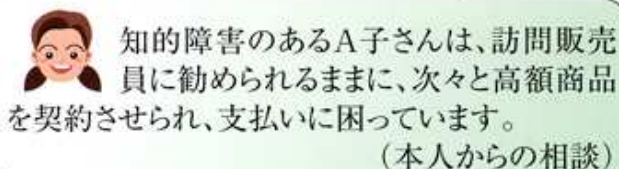 知的障害のあるA子さんは、訪問販売
員に勧められるままに、次々と高額商品
を契約させられ、支払いに困っています。
(本人からの相談)